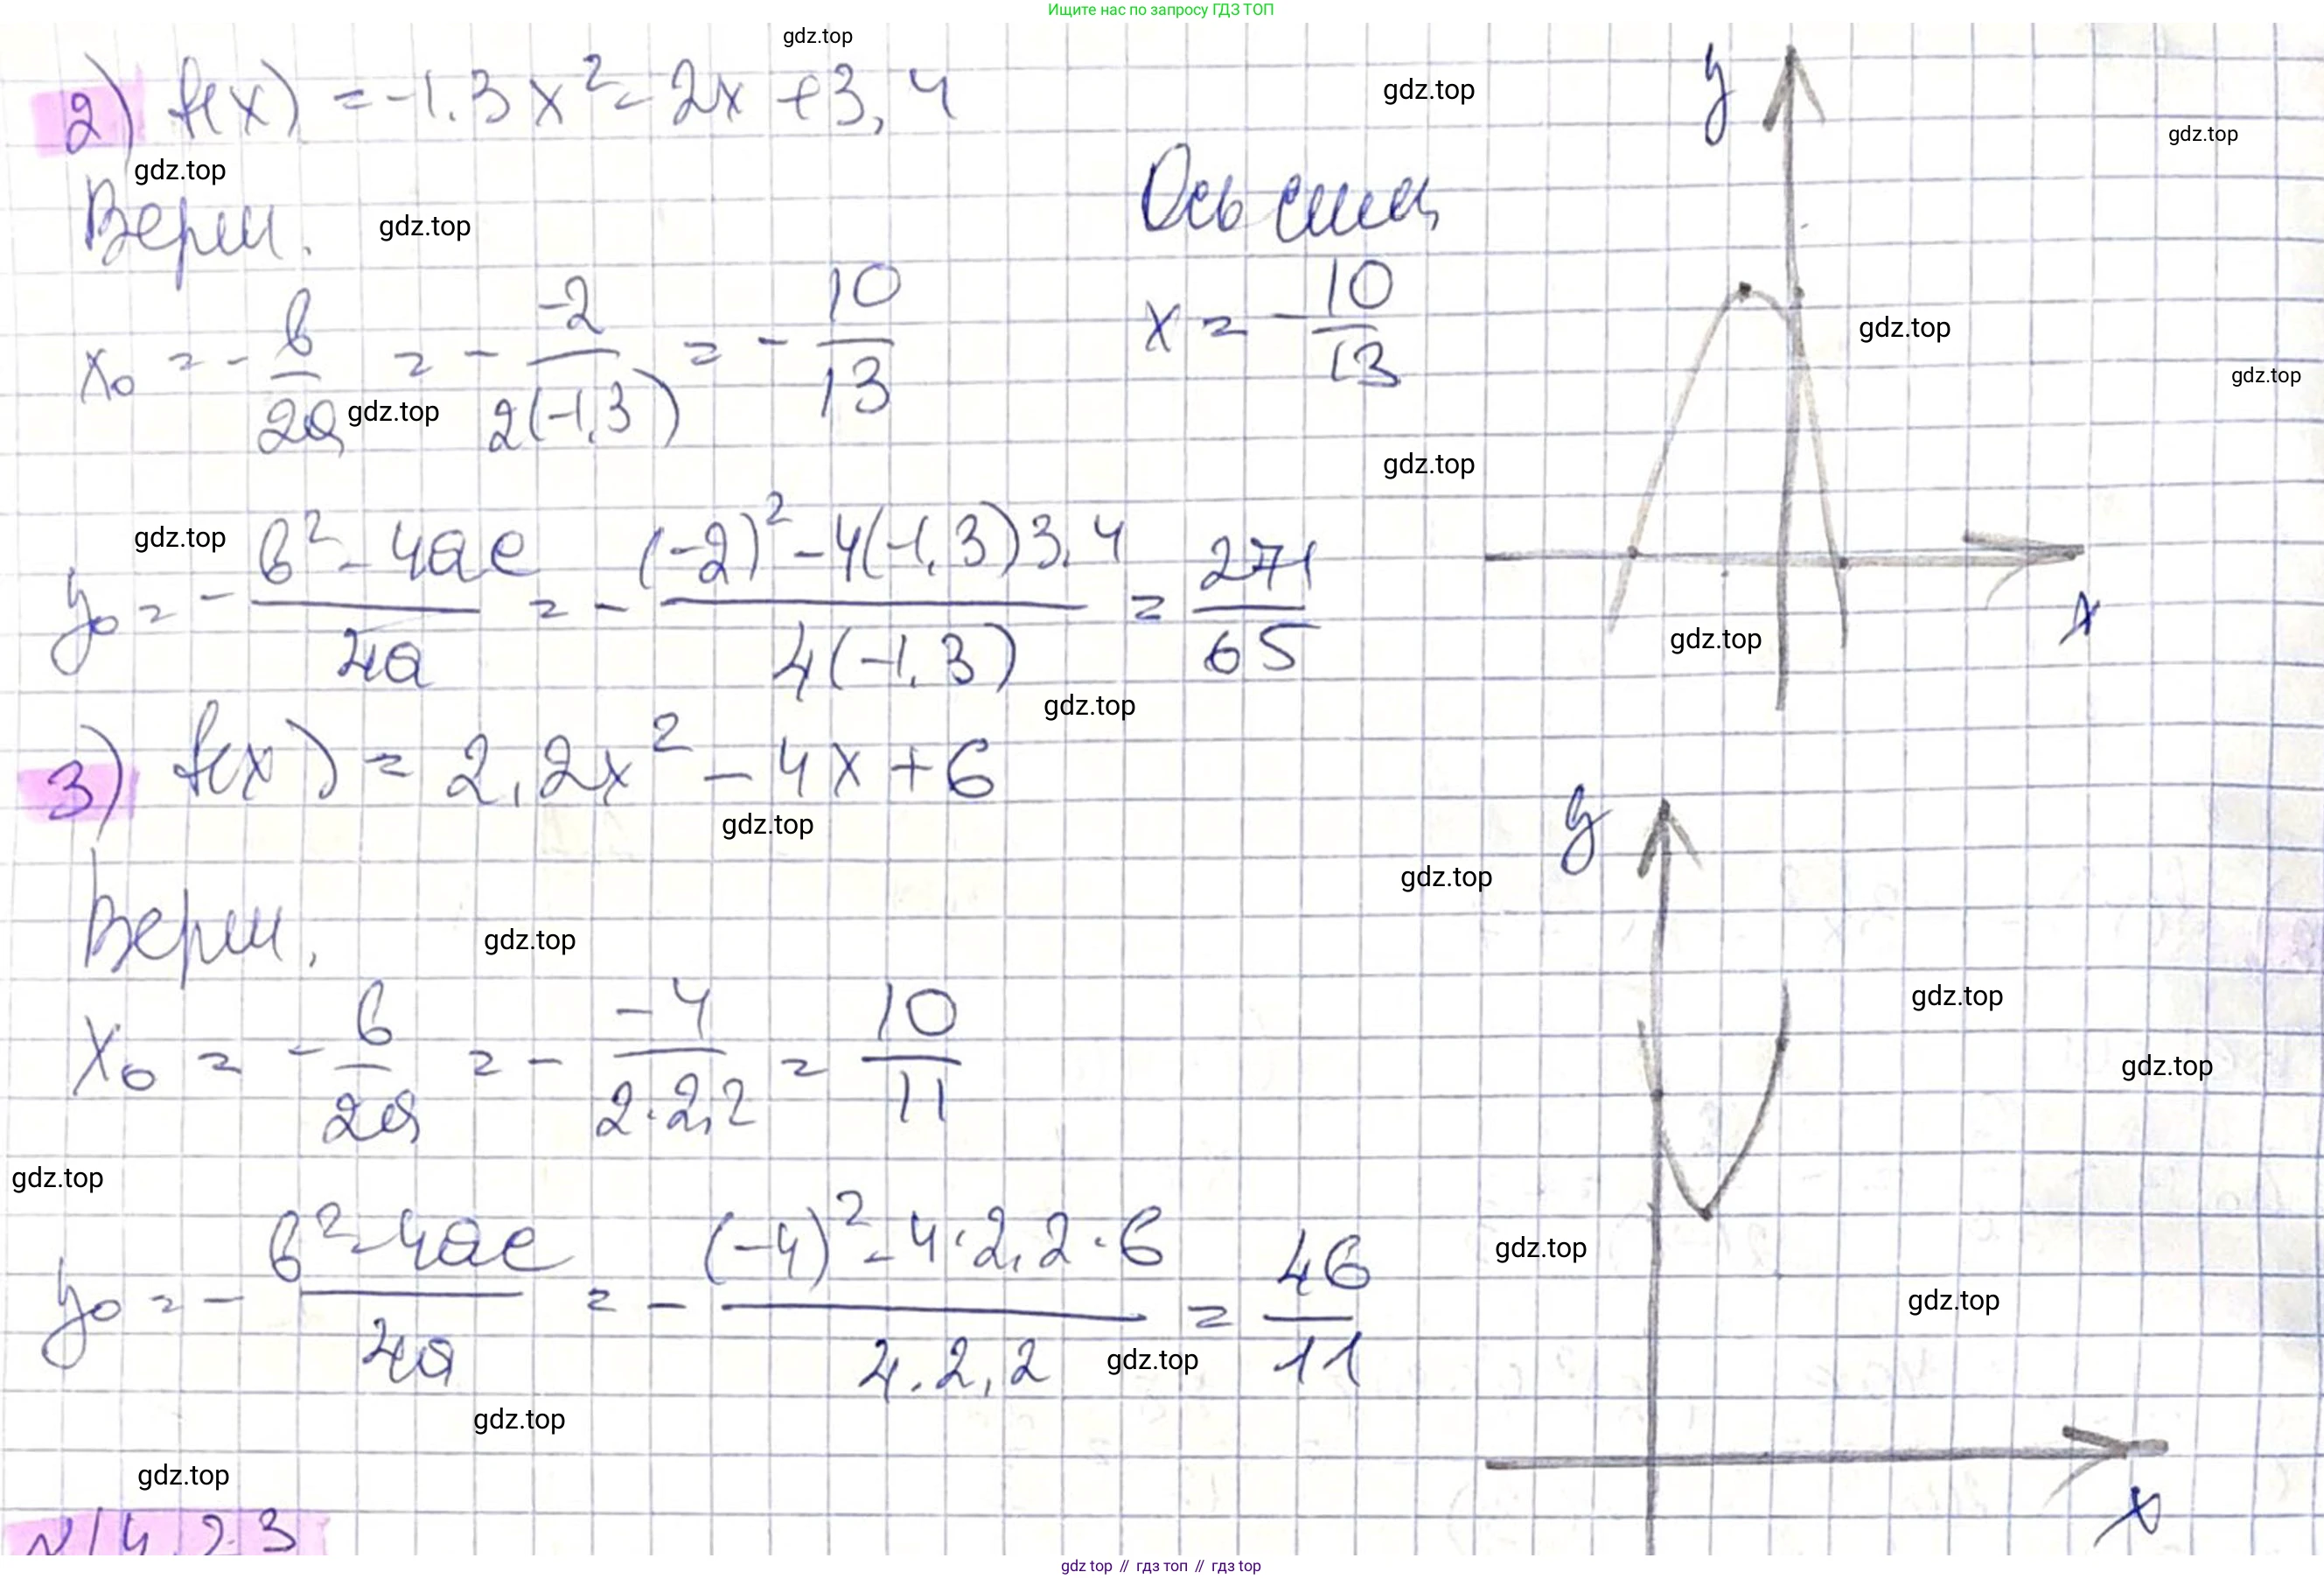 Ищите нас по запросу ГДЗ ТОП
gdz.top
2) f(x) = -1.3x² - 2x + 3,4
y
gdz.top
gdz.top
gdz.top
Верш.
gdz.top
Ось симм
x₀ = - b/2a = - -2/2(-1,3) = - 10/13
x = - 10/13
gdz.top
gdz.top
gdz.top
gdz.top
gdz.top
y₀ = - b² - 4ac/4a = - (-2)² - 4(-1,3)3,4/4(-1,3) = 271/65
x
gdz.top
gdz.top
3) f(x) = 2,2x² - 4x + 6
y
gdz.top
gdz.top
Верш.
gdz.top
gdz.top
x₀ = - b/2a = - -4/2·2,2 = 10/11
gdz.top
gdz.top
y₀ = - b² - 4ac/4a = - (-4)² - 4·2,2·6/4·2,2 = 46/11
gdz.top
gdz.top
gdz.top
gdz.top
gdz.top
x
N14.23
gdz top // гдз топ // гдз top